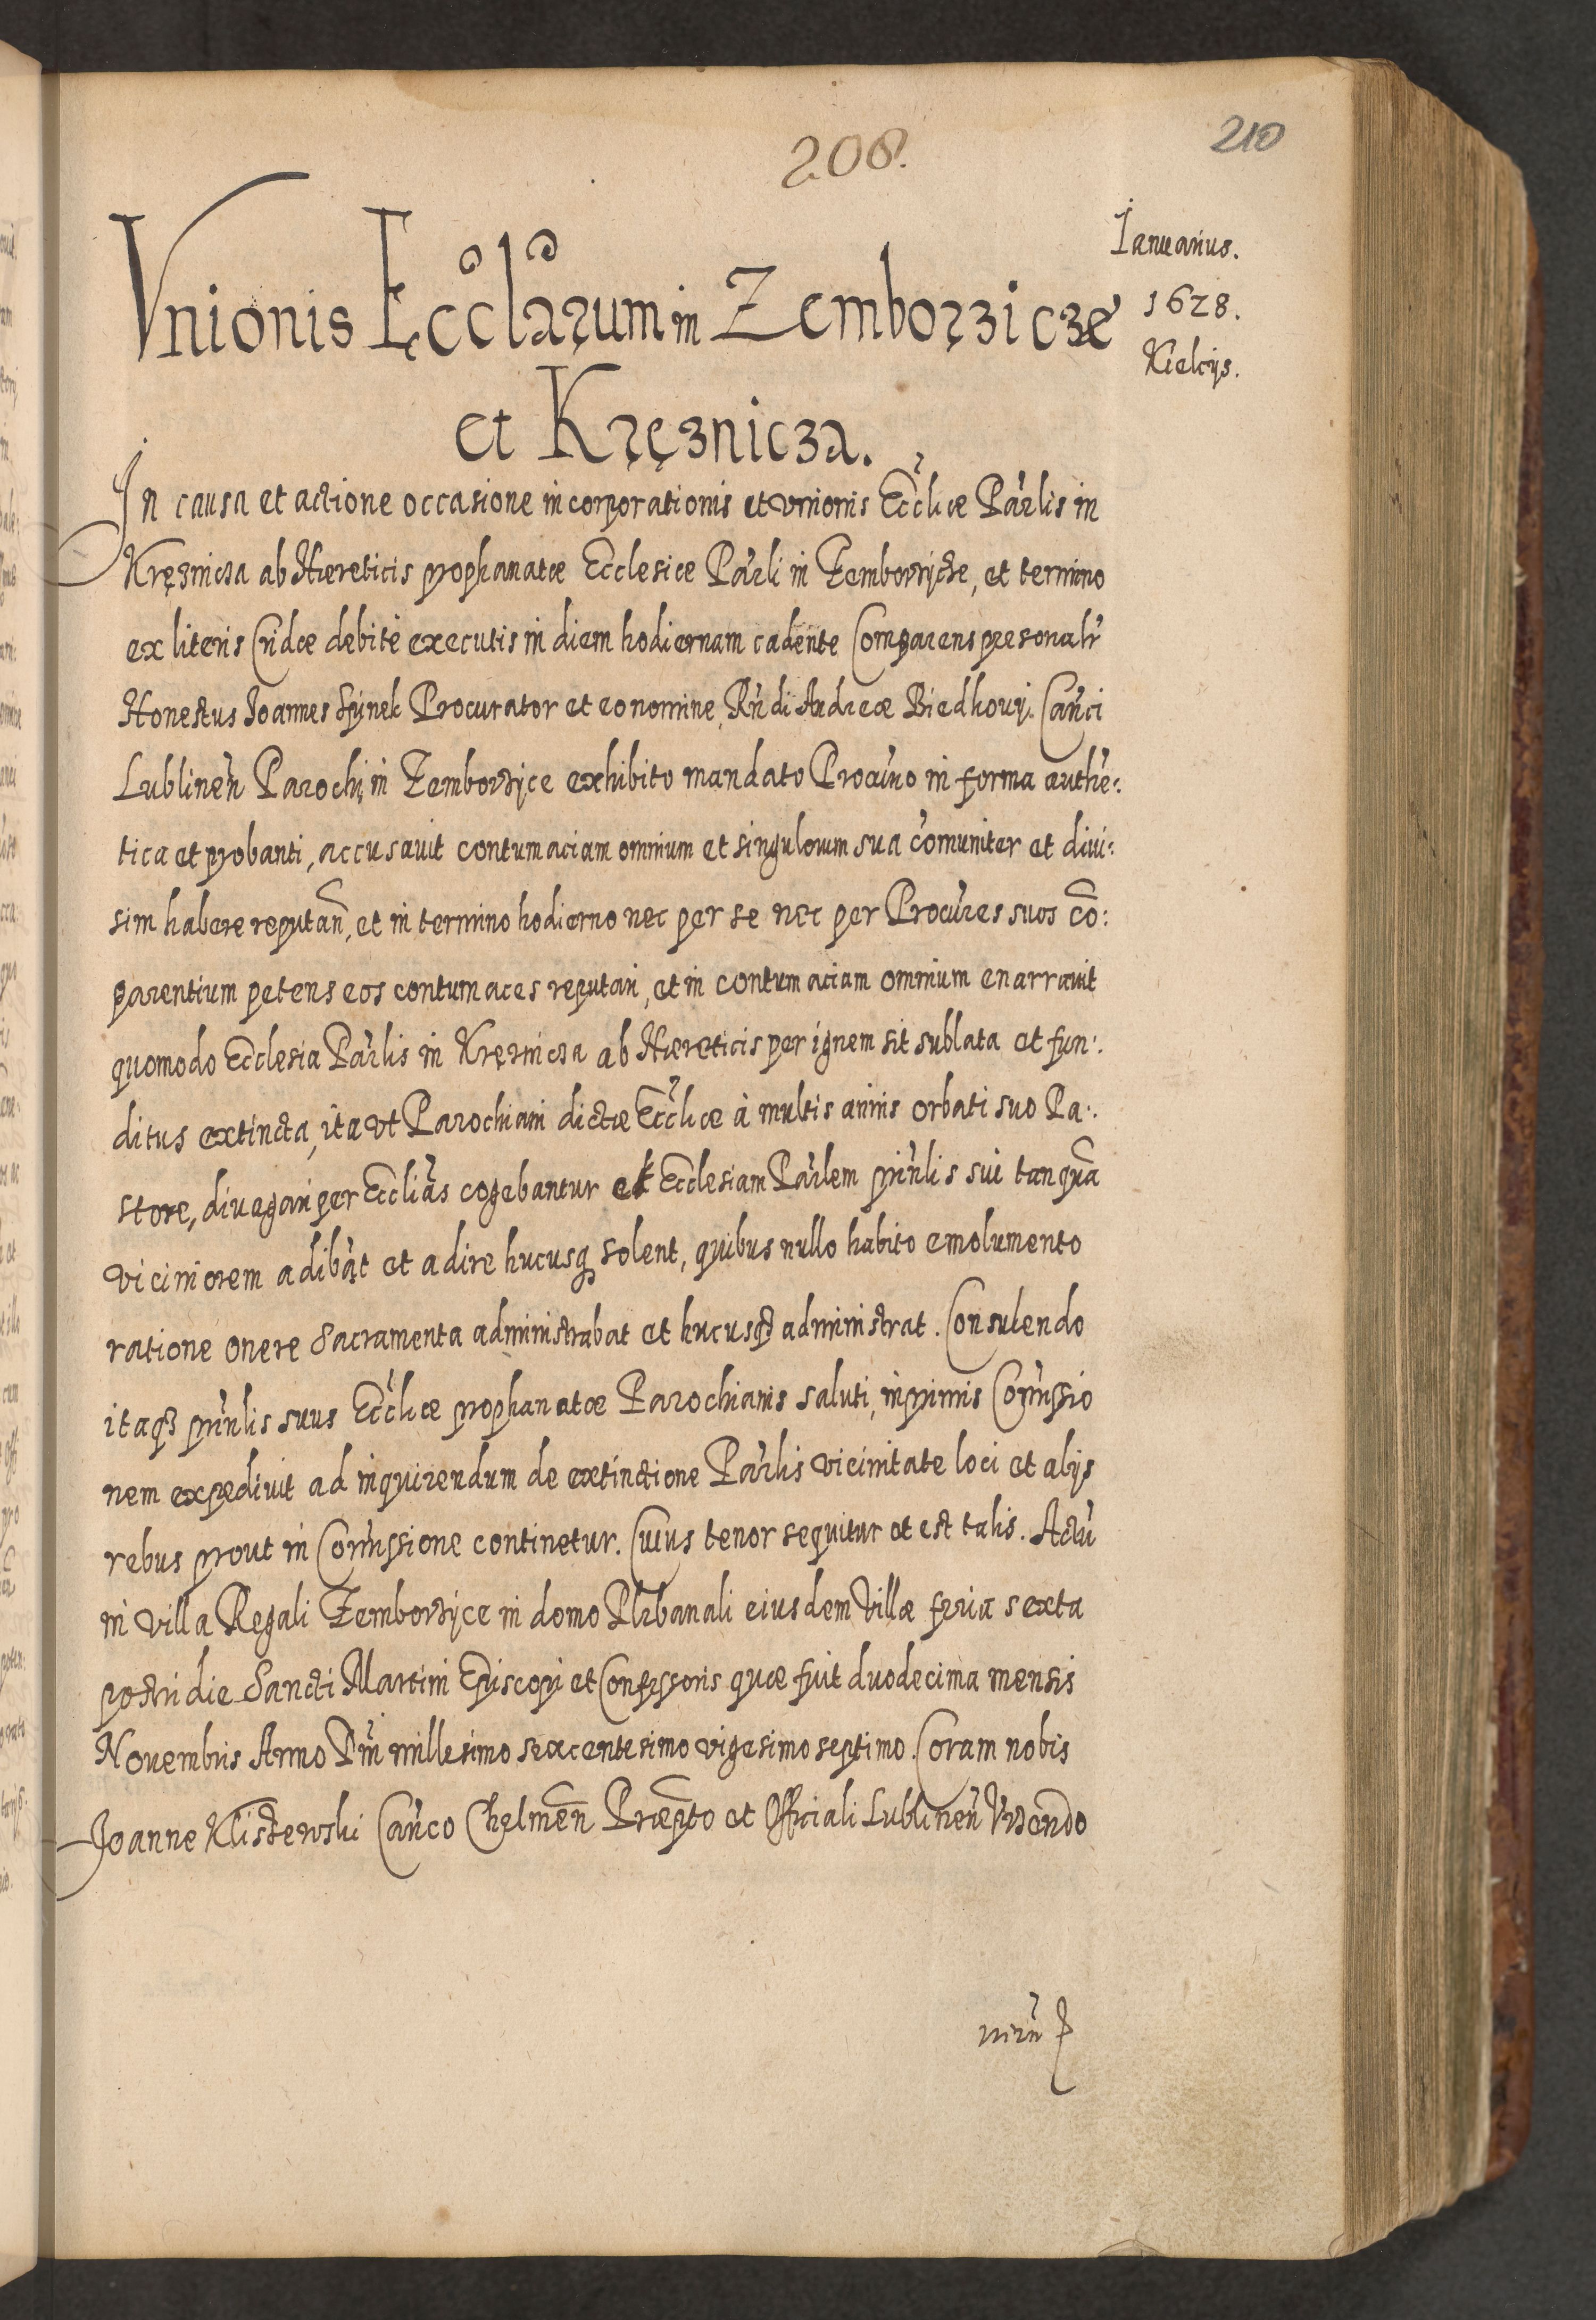 208.
210
Ianuarius.
1628.
Kielcijs.
Vnionis Eccl̃arum in Zemborzicze
et Kręznicza.
In causa et actione occasione incorporationis et vnionis Eccl̃iæ Par̃lis in
Kręznicza ab Hæreticis prophanatæ Ecclesiæ Par̃li in Zemborzycze, et termino
ex literis Cridæ debitè executis in diem hodiernam cadente Comparens personalr̃
Honestus Joannes Hynek Procurator et eo nomine Rñdi Andreæ Biedkowij Cañci
Lublineñ Parochi in Zemborzyce exhibito mandato Procũrio in forma authẽ:
tica et probanti, accusauit contumaciam omnium et singulorum sua cõmuniter et diui:
sim habere reputañ, et in termino hodierno nec per se nec per Procũres suos cõ:
parentium petens eos contumaces reputari, et in contumaciam omnium enarrauit
quomodo Ecclesia Par̃lis in Kręznicza ab Hæreticis per ignem sit sublata et fun:
ditus extincta, ita vt Parochiani dictæ Eccl̃iæ à multis annis orbati suo Pa:
store, diuagari per Eccl̃ias cogebantur et Ecclesiam Par̃lem prñlis sui tanquã
viciniorem adibãt et adire hucusq; solent, quibus nullo habito emolumento
ratione onere Sacramenta administrabat et hucusq; administrat. Consulendo
itaq; prñlis suus Eccl̃iæ prophanatæ Parochianis saluti, inprimis Com̃issio
nem expediuit ad inquirendum de extinctione Par̃lis vicinitate loci et alijs
rebus prout in Com̃issione continetur. Cuius tenor sequitur et est talis. Actũ
in villa Regali Zemborzyce in domo Plebanali eiusdem Villæ feria sexta
postridie Sancti Martini Episcopi et Confessoris quæ fuit duodecima mensis
Nouembris Anno Dñi millesimo sexcentesimo vigesimo septimo. Coram nobis
Joanne Klistewski Cañco Chelmeñ Præpto et Officiali Lublineñ Vrzendo